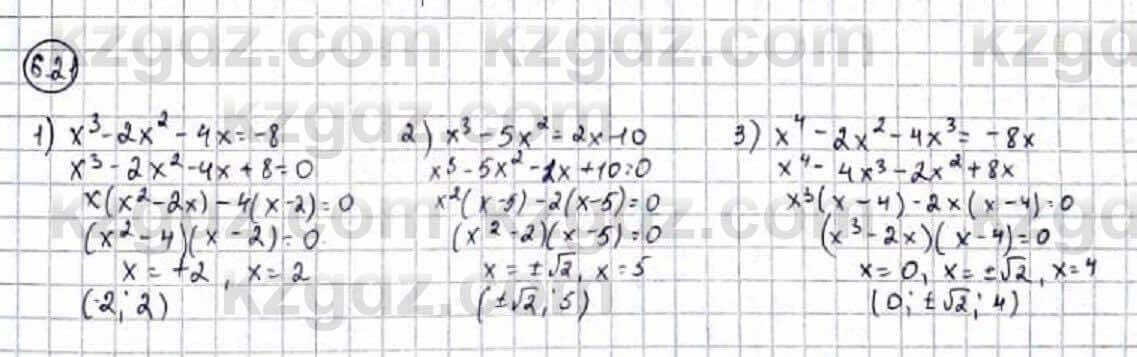 6.21
1) x³ - 2x² - 4x = -8
x³ - 2x² - 4x + 8 = 0
x(x² - 2x) - 4(x - 2) = 0
(x² - 4)(x - 2) = 0
x = ±2, x = 2
(-2; 2)
2) x³ - 5x² = 2x - 10
x³ - 5x² - 2x + 10 = 0
x²(x - 5) - 2(x - 5) = 0
(x² - 2)(x - 5) = 0
x = ±√2, x = 5
(±√2; 5)
3) x⁴ - 2x² - 4x³ = -8x
x⁴ - 4x³ - 2x² + 8x
x³(x - 4) - 2x(x - 4) = 0
(x³ - 2x)(x - 4) = 0
x = 0, x = ±√2, x = 4
(0; ±√2; 4)
kzgdz.com